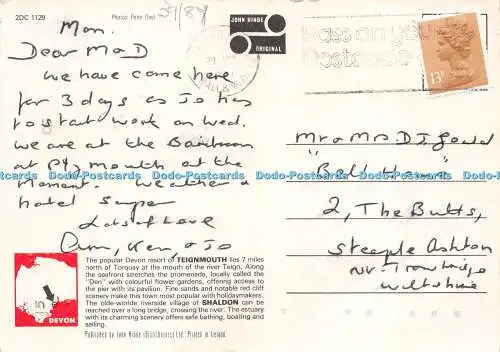 2DC 1129
Photo: Peter Ebel
29/84
JOHN HINDE
ORIGINAL
Pass on your
Postcode
13P
Mon.
Dear M & D
We have come here
for 3 days as Jo has
to start work on Wed.
We are at the
at Plymouth at the
moment. Weather &
hotel super
Lots of Love
Ken, & Jo
Mr & Mrs D J Gould
"Bell House"
2, The Butts,
Steeple Ashton
Nr. Trowbridge
Wiltshire
The popular Devon resort of TEIGNMOUTH lies 7 miles
north of Torquay at the mouth of the river Teign. Along
the seafront stretches the promenade, locally called the
"Den" with colourful flower gardens, offering access
to the pier with its pavilion. Fine sands and notable red cliff
scenery make this town most popular with holidaymakers.
The olde-worlde riverside village of SHALDON can be
reached over a long bridge, crossing the river. The estuary
with its charming scenery offers safe bathing, boating and
sailing.
DEVON
Published by John Hinde (Distributors) Ltd. Printed in Ireland.
Dodo-Postcards